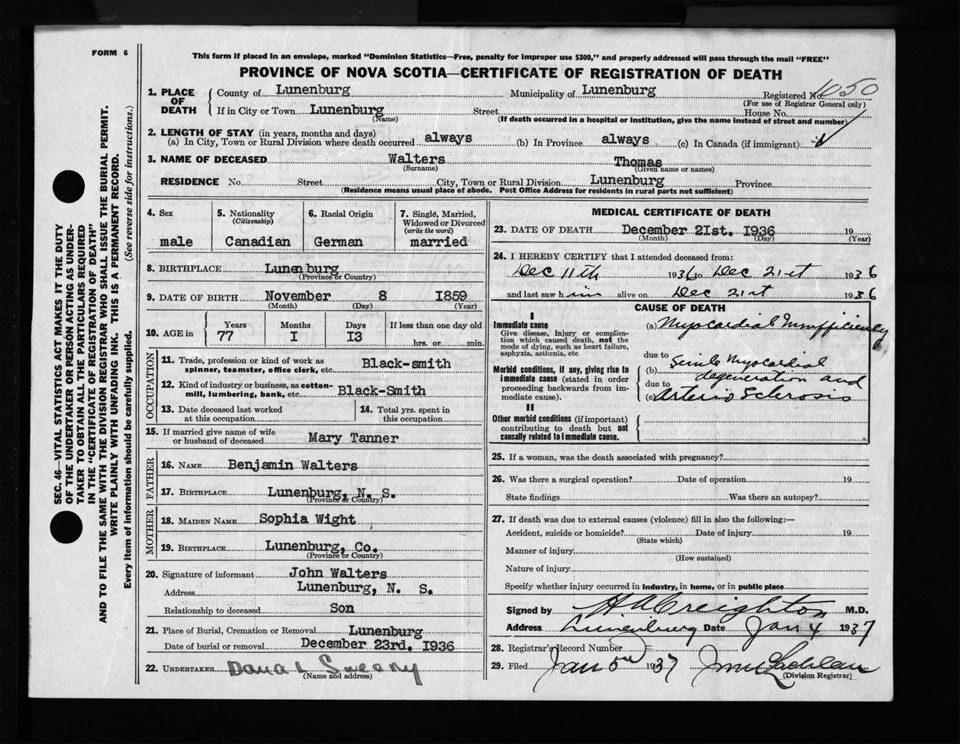 FORM 6
This form if placed in an envelope, marked "Dominion Statistics—Free, penalty for improper use $300," and properly addressed will pass through the mail "FREE"
PROVINCE OF NOVA SCOTIA—CERTIFICATE OF REGISTRATION OF DEATH
SEC. 46—VITAL STATISTICS ACT MAKES IT THE DUTY
OF THE UNDERTAKER OR PERSON ACTING AS UNDER-
TAKER TO OBTAIN ALL THE PARTICULARS REQUIRED
IN THE "CERTIFICATE OF REGISTRATION OF DEATH"
AND TO FILE THE SAME WITH THE DIVISION REGISTRAR WHO SHALL ISSUE THE BURIAL PERMIT.
WRITE PLAINLY WITH UNFADING INK. THIS IS A PERMANENT RECORD.
Every item of information should be carefully supplied. (See reverse side for instructions.)
1. PLACE OF DEATH
County of Lunenburg Municipality of Lunenburg Registered No. 1050
(For use of Registrar General only)
If in City or Town Lunenburg Street House No.
(Name) (If death occurred in a hospital or institution, give the name instead of street and number)
2. LENGTH OF STAY (in years, months and days)
(a) In City, Town or Rural Division where death occurred always (b) In Province always (c) In Canada (if immigrant)
3. NAME OF DECEASED Walters Thomas
(Surname) (Given name or names)
RESIDENCE No. Street City, Town or Rural Division Lunenburg Province
(Residence means usual place of abode. Post Office Address for residents in rural parts not sufficient)
4. Sex male
5. Nationality (Citizenship) Canadian
6. Racial Origin German
7. Single, Married, Widowed or Divorced (write the word) married
8. BIRTHPLACE Lunenburg
(Province or Country)
9. DATE OF BIRTH November 8 1859
(Month) (Day) (Year)
10. AGE in Years 77 Months I Days I3 If less than one day old hrs. or min.
OCCUPATION
11. Trade, profession or kind of work as spinner, teamster, office clerk, etc. Black-smith
12. Kind of industry or business, as cotton-mill, lumbering, bank, etc. Black-Smith
13. Date deceased last worked at this occupation
14. Total yrs. spent in this occupation
15. If married give name of wife or husband of deceased Mary Tanner
FATHER
16. NAME Benjamin Walters
17. BIRTHPLACE Lunenburg, N. S.
(Province or Country)
MOTHER
18. MAIDEN NAME Sophia Wight
19. BIRTHPLACE Lunenburg, Co.
(Province or Country)
20. Signature of informant John Walters
Address Lunenburg, N. S.
Relationship to deceased Son
21. Place of Burial, Cremation or Removal Lunenburg
Date of burial or removal December 23rd. I936
22. UNDERTAKER
(Name and address)
MEDICAL CERTIFICATE OF DEATH
23. DATE OF DEATH December 2Ist. I936 19
(Month) (Day) (Year)
24. I HEREBY CERTIFY that I attended deceased from:
Dec 11th 1936 to Dec 21st 1936
and last saw him alive on Dec 21st 1936
CAUSE OF DEATH
I
Immediate cause
Give disease, injury or complication which caused death, not the mode of dying, such as heart failure, asphyxia, asthenia, etc
(a) Myocardial Insufficiency
due to
Morbid conditions, if any, giving rise to immediate cause (stated in order proceeding backwards from immediate cause).
(b) Senile Myocardial degeneration and
due to
(c) Arterio Sclerosis
II
Other morbid conditions (if important) contributing to death but not causally related to immediate cause.
25. If a woman, was the death associated with pregnancy?
26. Was there a surgical operation? Date of operation 19
State findings Was there an autopsy?
27. If death was due to external causes (violence) fill in also the following:—
Accident, suicide or homicide? Date of injury 19
(State which)
Manner of injury
(How sustained)
Nature of injury
Specify whether injury occurred in industry, in home, or in public place
Signed by H A Creighton M.D.
Address Lunenburg Date Jan 4 1937
28. Registrar's Record Number
29. Filed Jan 1937
(Division Registrar)